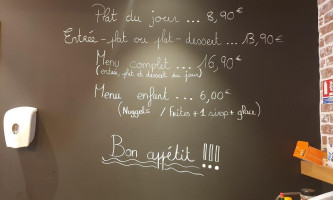 Plat du jour ... 8,90€
Entrée-plat ou plat-dessert ...13,90€
Menu complet ... 16,90€
(entrée, plat et dessert du jour)
Menu enfant ... 6,00€
(Nuggets / Frites + 1 sirop + glace)
Bon appétit !!!